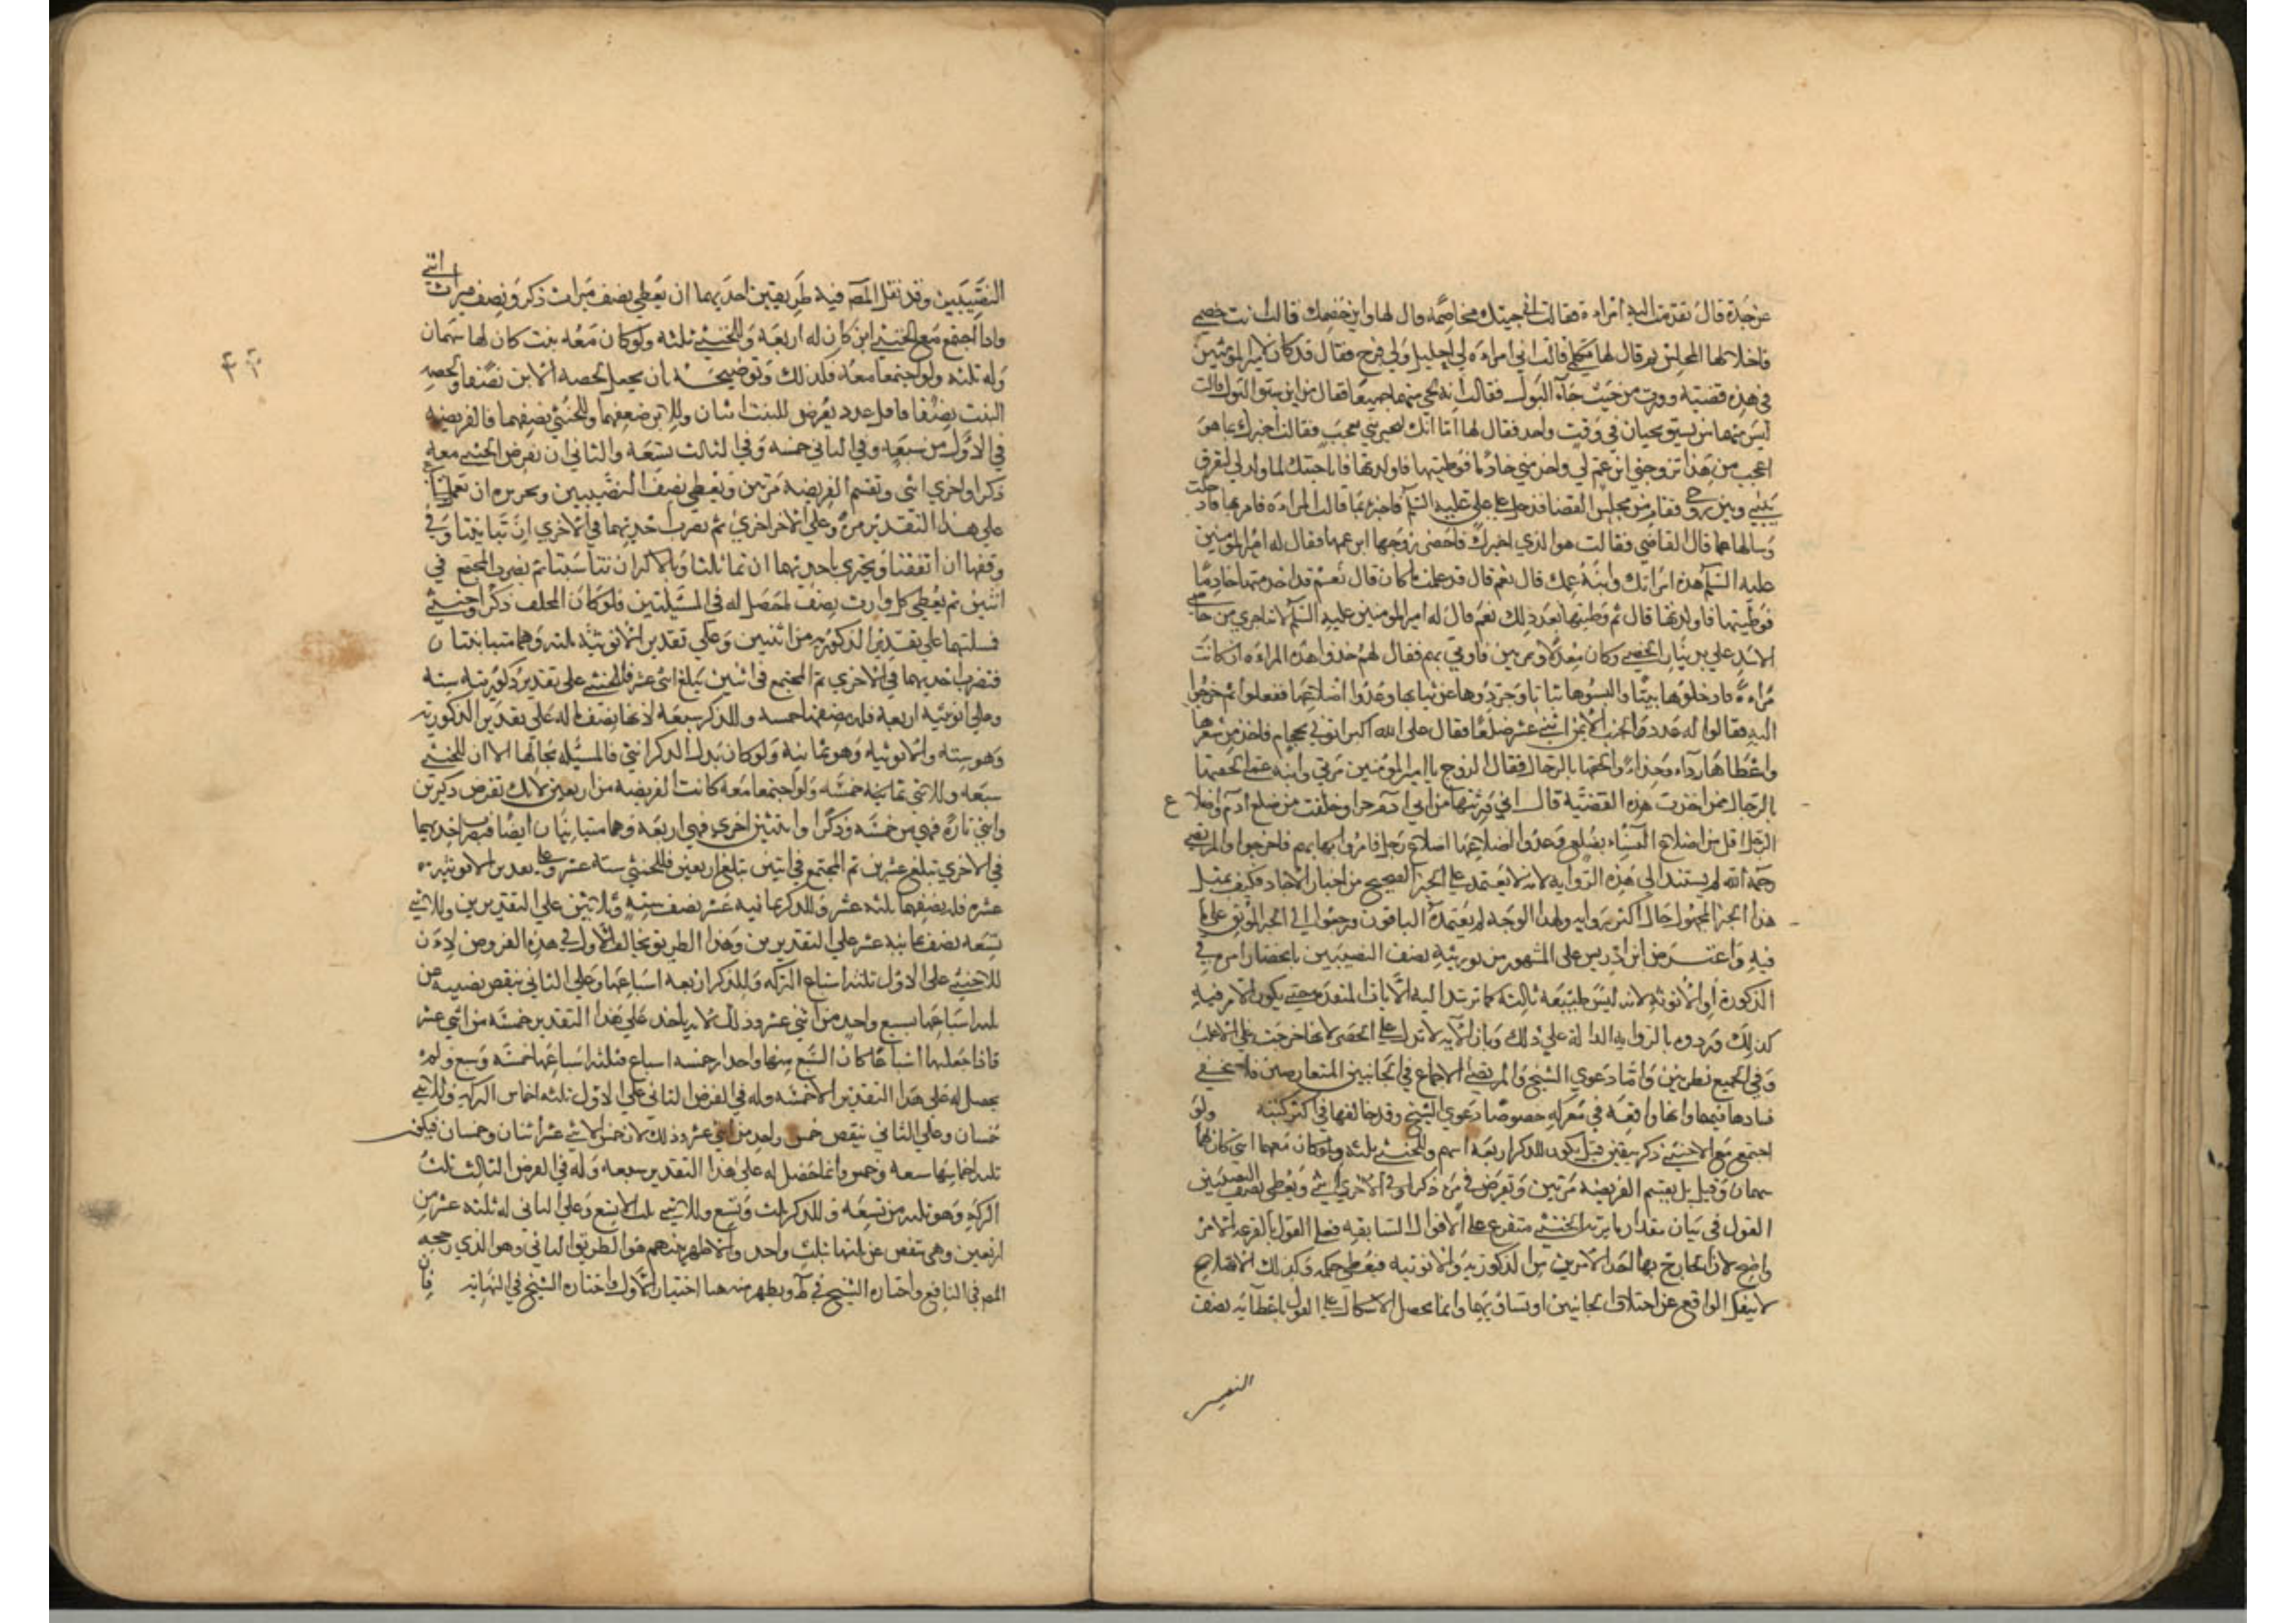 عن جده قال تقدمت اليه امراءة فقالت اني جيتك مخاصمة قال لها واين خصمك قالت انت خصمي
فاخلا لها المجلس ثم قال لها تكلمي قالت اني امراءة لي احليل ولي فرج فقال قد كان لامير المومنين
في هذه قضية وورث من حيث جاء البول فقالت انه يجي منهما جميعا فقال من اين يسبق البول قالت
ليس منهما شي يسبق يجيان في وقت واحد فقال لها انك لتخبريني بعجب فقالت اخبرك بما هو
اعجب من هذا تزوجني ابن عم لي واخدمني خادما فوطيتها فاولدتها فانما جيتك لما ولد لي لتفرق
بيني وبين زوجي فقام من مجلس القضا فدخل على علي عليه السلم فاخبره بما قالت المراءة فامر بها فادخلت
وسالها عما قال القاضي فقالت هو الذي اخبرك فاحضر زوجها ابن عمها فقال له امير المومنين
عليه السلم هذه امراتك وابنة عمك قال نعم قال قد علمت ما كان قال نعم قد اخدمتها خادما
فوطيتها فاولدتها قال ثم وطيتها بعد ذلك نعم قال له امير المومنين عليه السلم لانت اجرى من خاصي
الاسد علي بدينار الخصي وكان معدلا ومرتين فاوتي بهم فقال لهم خذوا هذه المراءة ان كانت
مراءة فادخلوها بيتا والبسوها ثيابا وجردوها عن ثيابها وعدوا اضلاعها ففعلوا ثم خرجوا
اليه فقالوا له عدد الجنب الايمن اثني عشر ضلعا فقال علي الله اكبر ايتوني بحجام فاخذ من شعرها
واعطاها رداء وحذاء والحقها بالرجال فقال الزوج يا امير المومنين امراتي وابنة عمي الحقتها
بالرجال ممن اخذت هذه القضية قال اني ورثتها من ابي ادم حوا خلقت من ضلع ادم واضلاع
الرجال اقل من اضلاع النساء بضلع وعدوا اضلاعها اضلاع رجل فامر بهم فاخرجوا والمرتضى
رحمه الله لم يستند الى هذه الرواية لانه لا يعتمد على الخبر الصحيح من اخبار الاحاد فكيف بمثل
هذا الخبر المجهول حال اكثر رواته ولهذا الوجه لم يعتمده الباقون ورجعوا الى الخبر الموثق على ما
فيه واعترض ابن ادريس على المشهور من توريثه نصف النصيبين بانحصار امره في
الذكورة او الانوثة لانه ليس طبيعة ثالثة كما ترشد اليه الايات المتقدمة حتى يكون الامر فيه
كذلك وردوه بالرواية الدالة على ذلك وبان الاية لا تدل على الحصر لانها خرجت على الاغلب
وفي الجميع نظر بين واما دعوى الشيخ والمرتضى الاجماع في الجانبين المتعارضين فلا يخفى
فسادها فيهما وانها واقعة في معركة خصوصا دعوى الشيخ وقد خالفها في اكثر كتبه ولو
اجتمع مع الخنثى ذكر بيقين قيل يكون للذكر اربعة اسهم وللخنثى ثلثة ولو كان معهما انثى كان لها
سهمان وقيل بل يقسم الفريضة مرتين وتفرض في مرة ذكرا وفي الاخرى انثى ويعطى نصف النصيبين
القول في بيان مقدار ما يرثه الخنثى متفرع على الاقوال السابقة فعلى القول بالقرعة الامر
واضح لان الخارج بها احد الامرين من الذكورية والانوثية فيعطى حكمه وكذلك الاضلاع
لا ينفك الواقع عن اختلاف الجانبين او تساويهما وانما يحصل الاشكال على القول باعطائه نصف
النصيبين
النصيبين وقد نقل المصنف فيه طريقين احديهما ان يعطى نصف ميراث ذكر ونصف ميراث انثى
واذا اجتمع مع الخنثى ابن كان له اربعة وللخنثى ثلثة ولو كان معه بنت كان لها سهمان
وله ثلثة ولو اجتمعا معه فكذلك وتوضيحه بان يجعل لحصة الابن نصفا ولحصة
البنت نصفا فاقل عدد يفرض للبنت اثنان وللابن ضعفهما وللخنثى نصفهما فالفريضة
في الاول من سبعة وفي الثاني خمسة وفي الثالث تسعة والثاني ان تفرض الخنثى مرة
ذكرا واخرى انثى وتقسم الفريضة مرتين وتعطى نصف النصيبين وتحريره ان تعملها
على هذا التقدير مرة وعلى الاخر اخرى ثم تضرب احديهما في الاخرى ان تباينتا وفي
وفقها ان اتفقتا وتجتزي باحديهما ان تماثلتا وبالاكثر ان تناسبتا ثم تضرب المجتمع في
اثنين ثم يعطى كل وارث نصف ما حصل له في المسئلتين فلو كان المخلف ذكرا وخنثى
فمسئلتهما على تقدير الذكورية من اثنين وعلى تقدير الانوثية ثلثة وهما متباينتان
فتضرب احديهما في الاخرى ثم المجتمع في اثنين يبلغ اثني عشر فللخنثى على تقدير ذكوريته ستة
وعلى انوثيته اربعة فله نصفهما خمسة وللذكر سبعة لانها نصف ما له على تقدير الذكورية
وهو ستة والانوثية وهو ثمانية ولو كان بدل الذكر انثى فالمسئلة بحالها الا ان للخنثى
سبعة وللانثى خمسة ولو اجتمعا معه كانت الفريضة من اربعين لانك تفرض ذكرين
وانثى تارة فهي من خمسة وذكرا وانثيين اخرى فهي اربعة وهما متباينان ايضا فتضرب احديهما
في الاخرى تبلغ عشرين ثم المجتمع في اثنين تبلغ اربعين فللخنثى ستة عشر وعلى تقدير الانوثية
عشرة فله نصفها ثلثة عشر وللذكر ثمانية عشر نصف ستة وثلاثين على التقديرين وللانثى
تسعة نصف ثمانية عشر على التقديرين وهذا الطريق يخالف الاول في هذه الفروض لان
للخنثى على الاول ثلثة اسباع التركة وللذكر اربعة اسباعها وعلى الثاني ينقص نصيبه عن
ثلثة اسباعها سبع واحد من اثني عشر وذلك لانه ياخذ على هذا التقدير خمسة من اثني عشر
فاذا جعلتها اسباعا كان السبع منها واحدا وخمسة اسباع فثلثة اسباعها خمسة وسبع ولم
يحصل له على هذا التقدير الا خمسة وله في الفرض الثاني على الاول ثلثة اخماس التركة وللانثى
خمسان وعلى الثاني ينقص خمس واحد من اثني عشر وذلك لان خمس الاثني عشر اثنان وخمسان فيكون
ثلثة اخماسها سبعة وخمس وانما حصل له على هذا التقدير سبعة وله في الفرض الثالث ثلث
التركة وهو ثلثة من تسعة وللذكر ثلث وتسع وللانثى ثلث الا تسع وعلى الثاني له ثلثة عشر من
اربعين وهي تنقص عن ثلثها بثلث واحد والاظهر عندهم هو الطريق الثاني وهو الذي رجحه
المصنف في النافع واختاره الشيخ في ط ويظهر منه هنا اختيار الاول واختاره الشيخ في النهاية فان